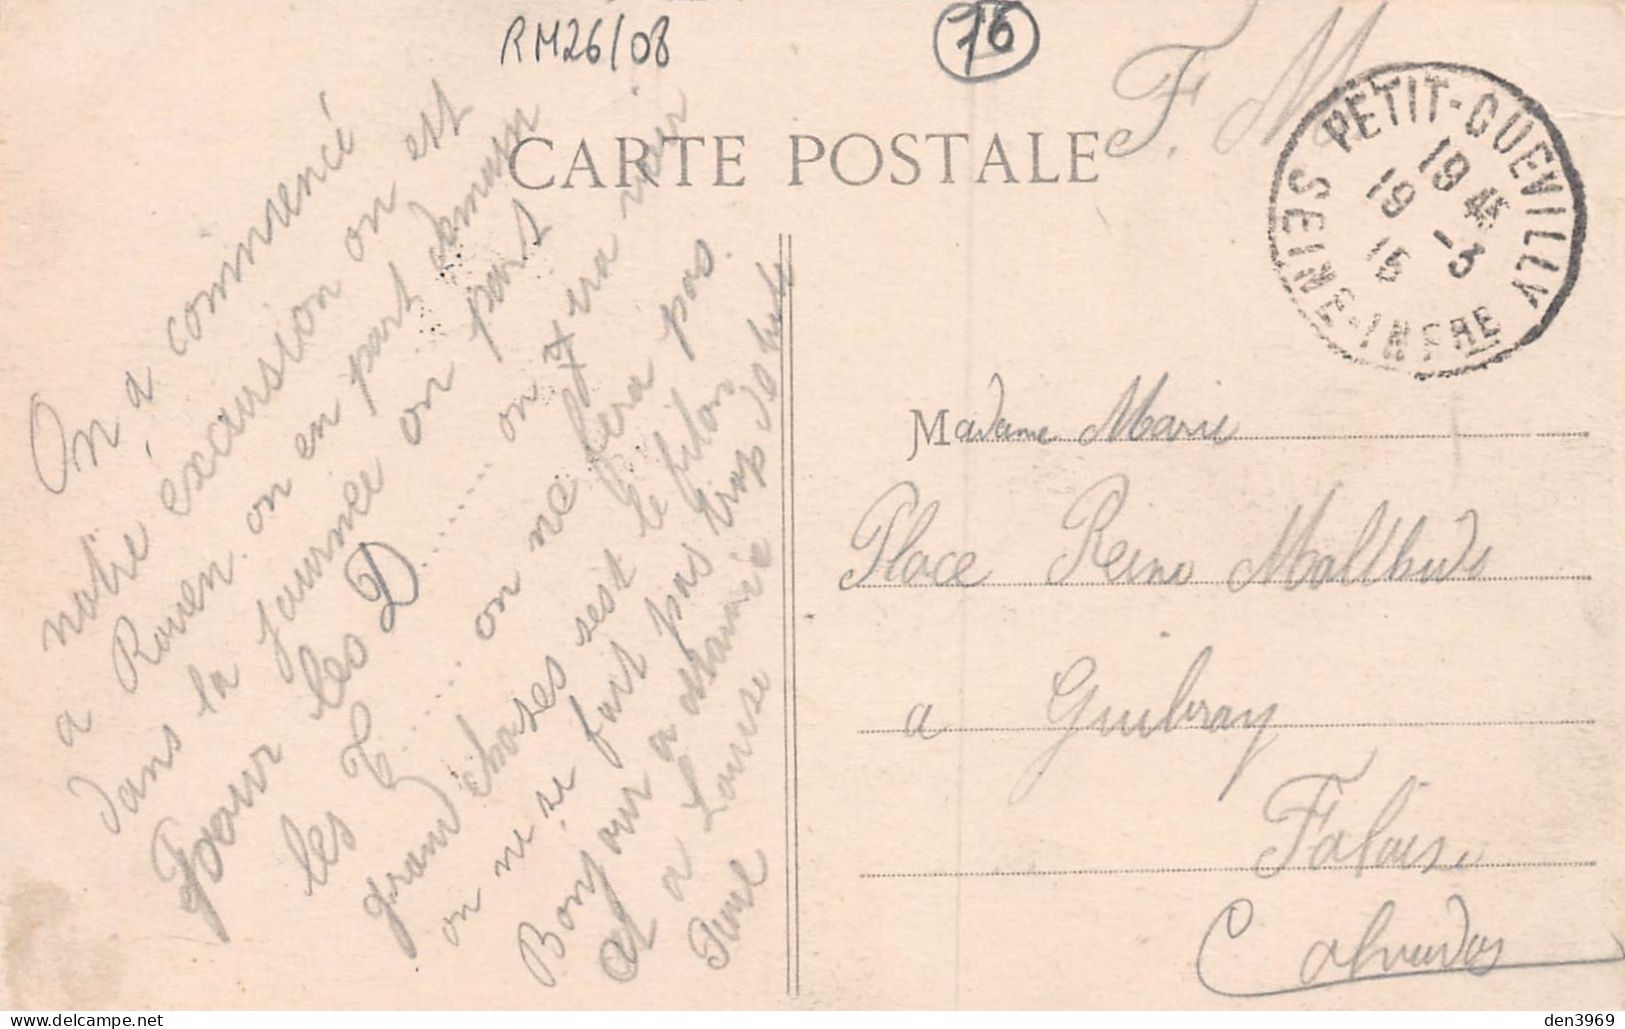 RM26/08
76
F. M
CARTE POSTALE
PETIT-QUEVILLY
19 45
19 -3
15
SEINE-INFRE
On a commencé
notre éxcursion on est
a Rouen. on en part demain
dans la journée on part
pour les D...... on ira voir
les T..... on ne fera pas
grand choses sest le filon
on ne se fait pas trop de bile
Bonjour a
et a Louise
Madame Marie
Place Reine Malthids
a Guibray
Falais
Calvados
den3969